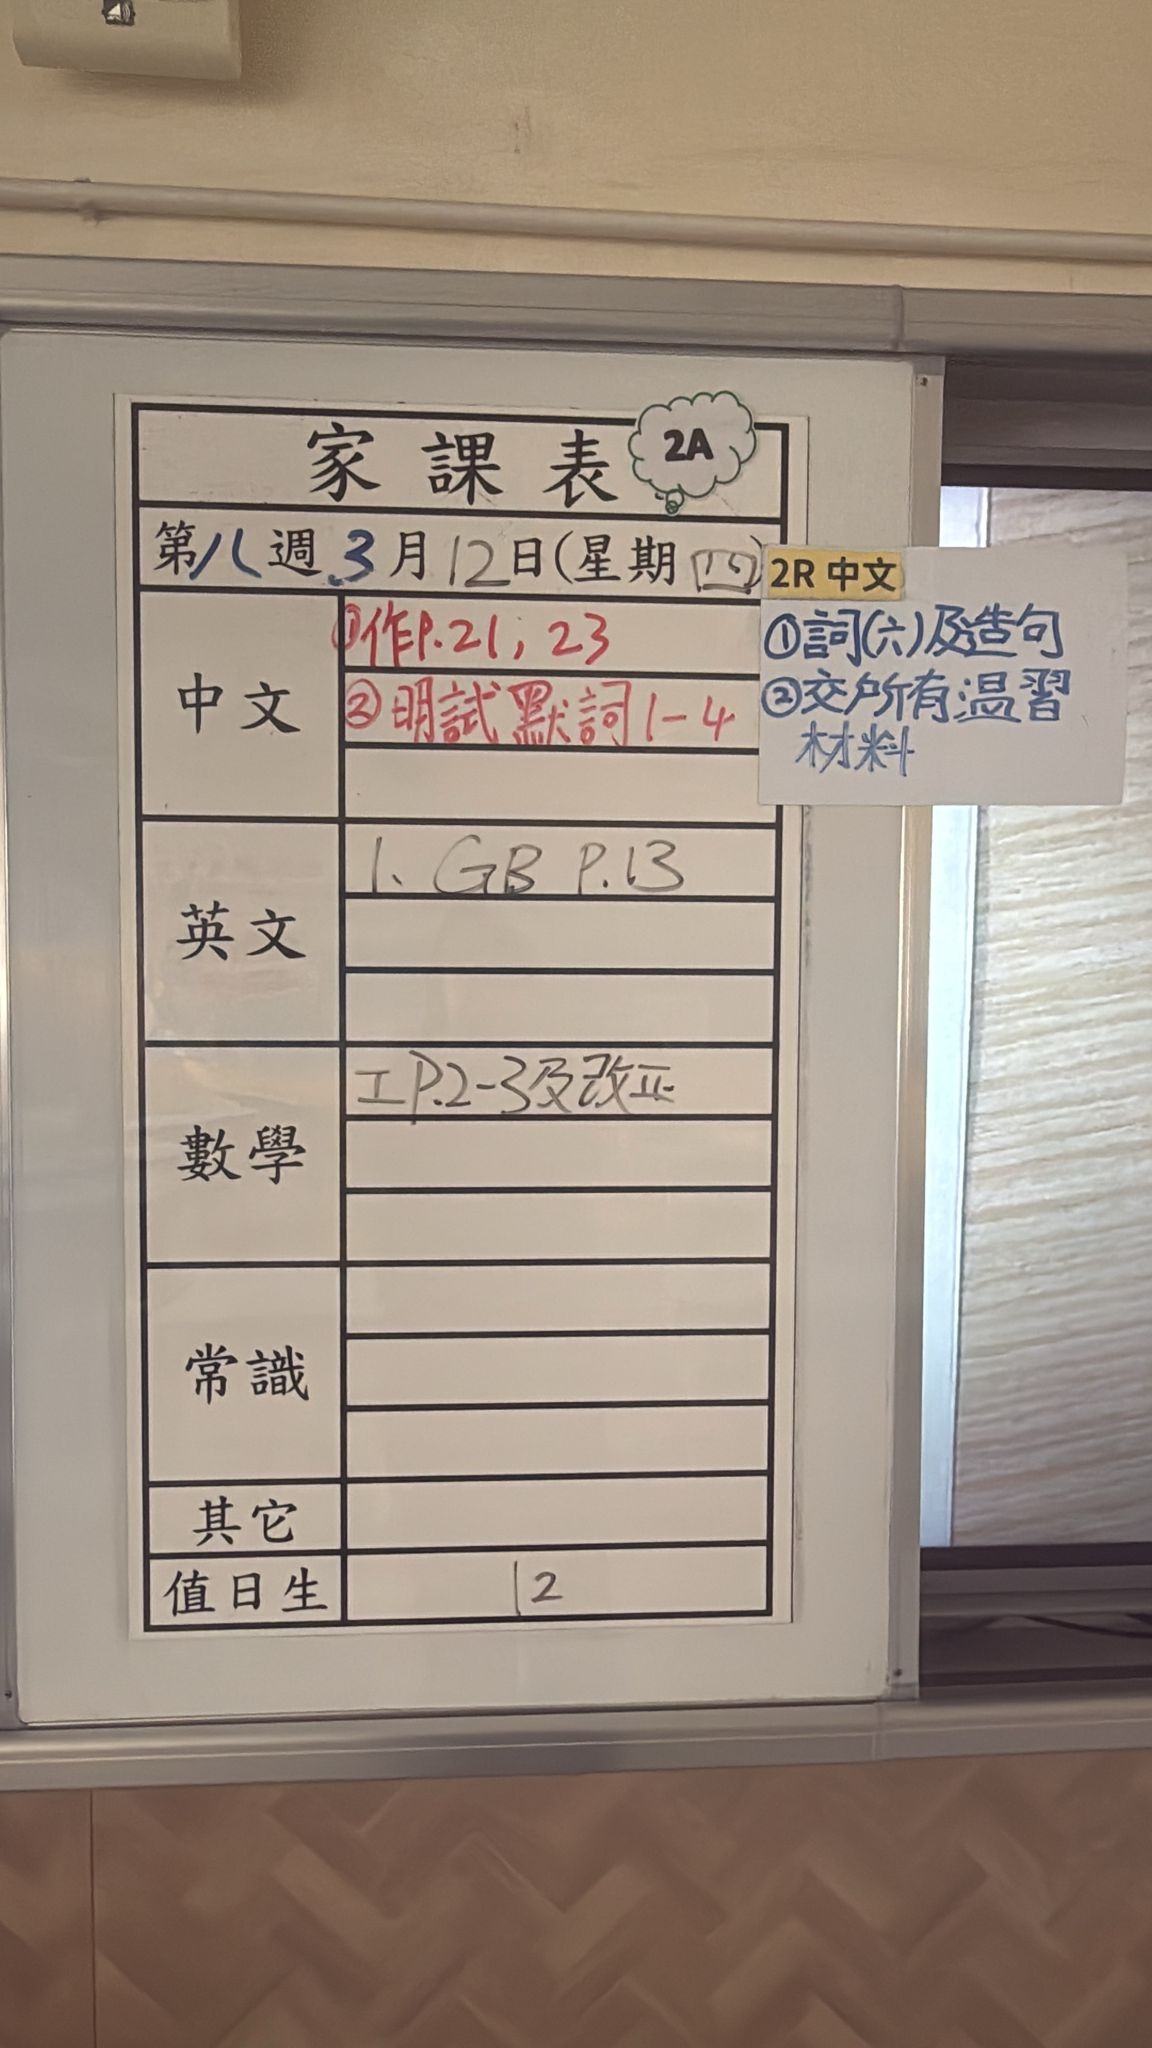 家課表 2A
第八週 3月12日(星期四)
中文
①作P.21, 23
②明試默詞1-4
2R 中文
①詞(六)及造句
②交所有温習
材料
英文
1. GB P.13
數學
工P.2-3及改正
常識
其它
值日生
12